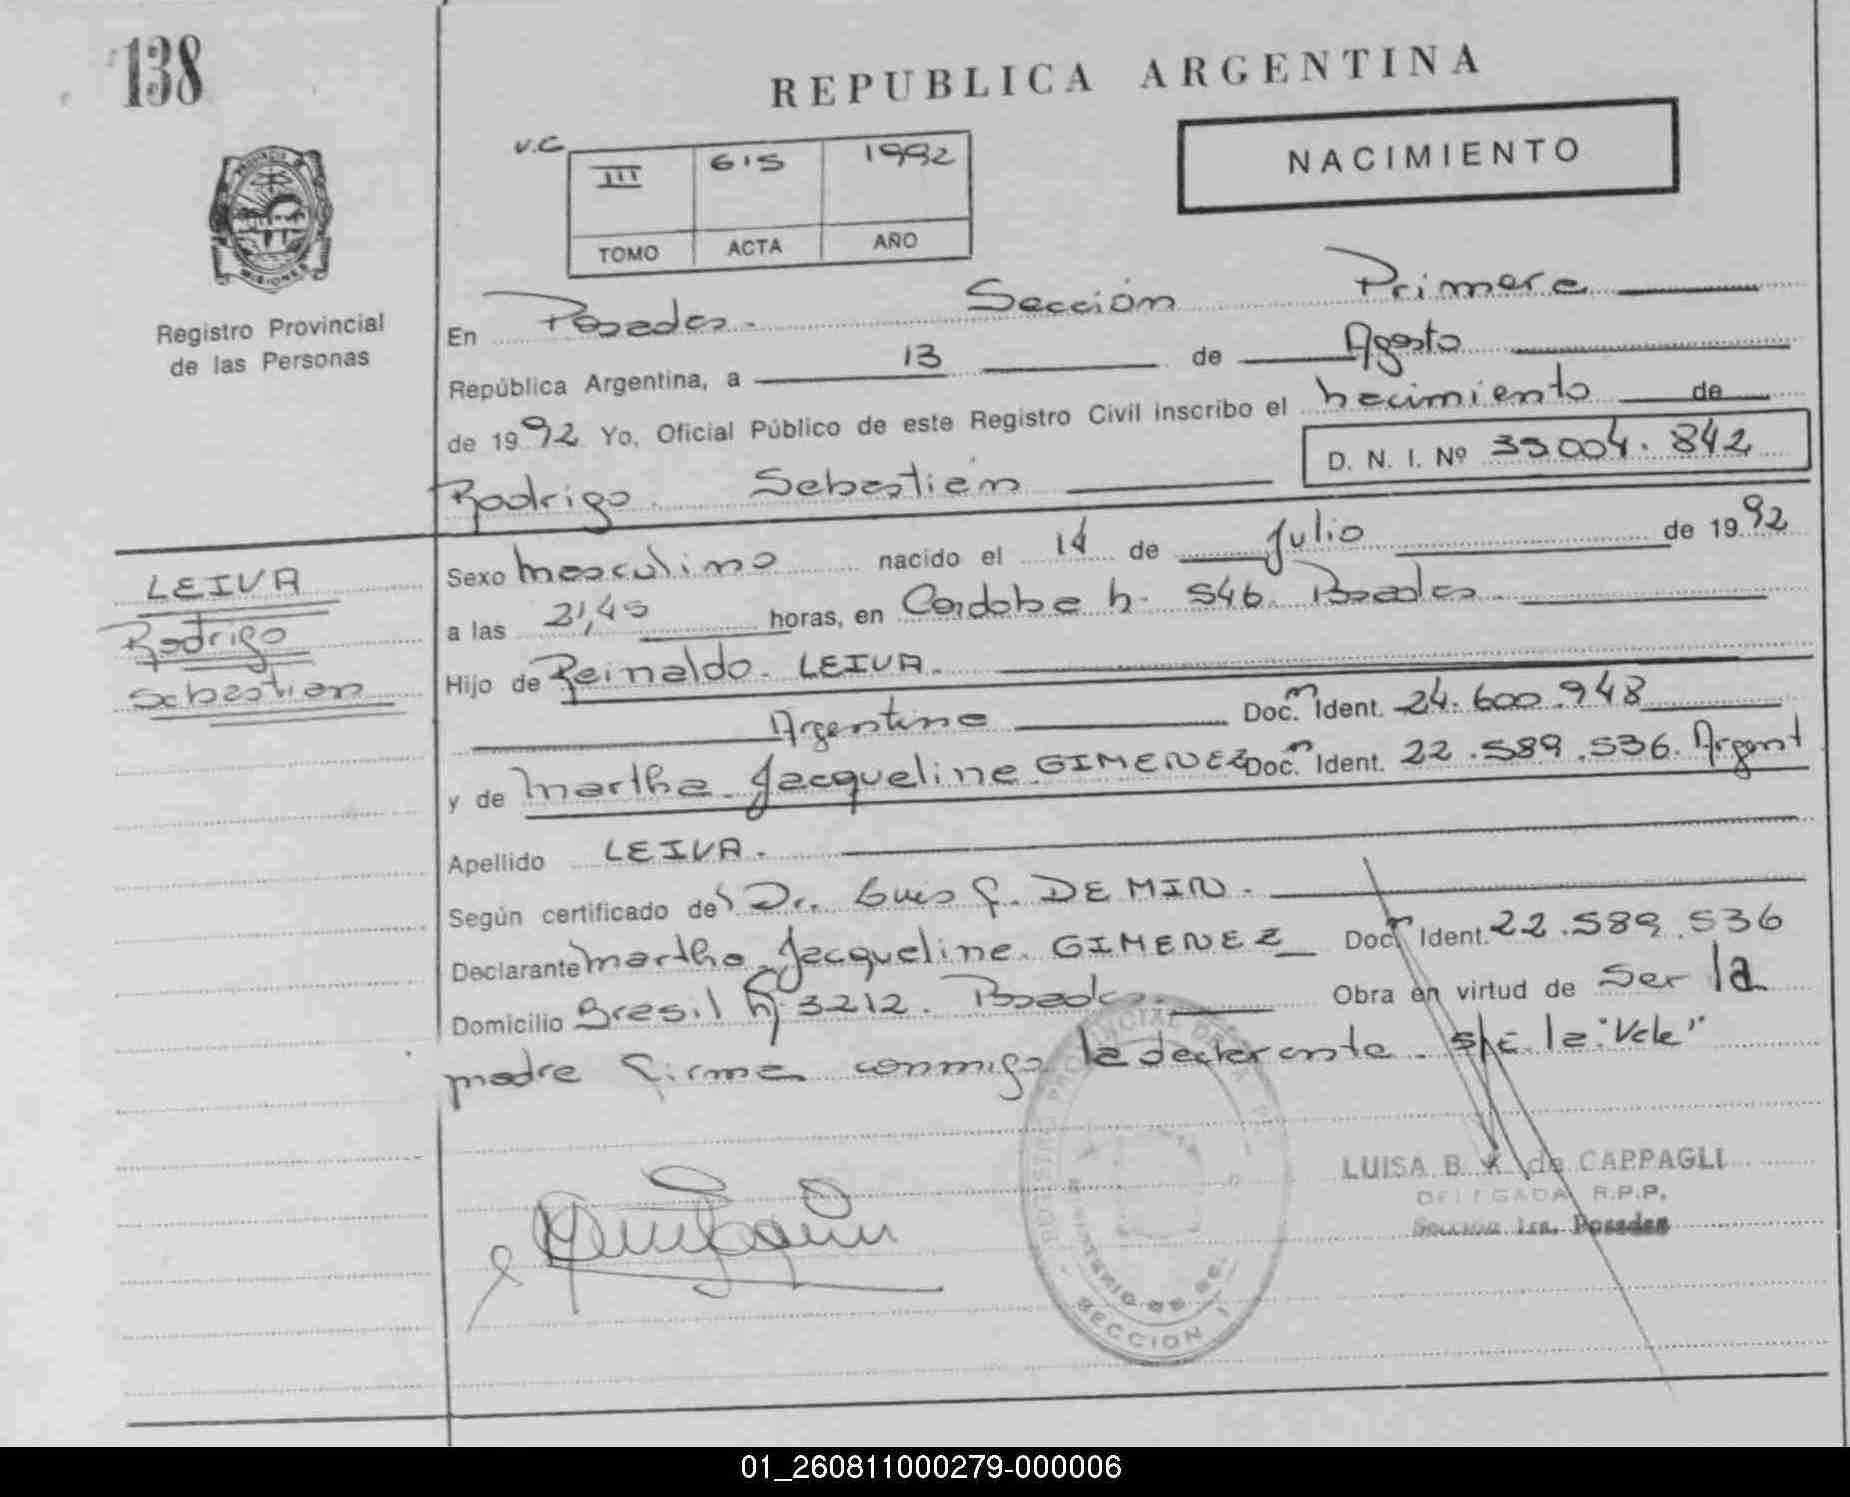 138
REPUBLICA ARGENTINA
NACIMIENTO
V.C
III 615 1992
TOMO ACTA AÑO
PROVINCIA DE MISIONES
Registro Provincial
de las Personas
En Posadas. Sección Primera
República Argentina, a 13 de Agosto
de 1992 Yo, Oficial Público de este Registro Civil inscribo el nacimiento de
D. N. I. Nº 33004.842
Rodrigo Sebastián
LEIVA
Rodrigo
Sebastian
Sexo masculino nacido el 14 de Julio de 1992
a las 21,45 horas, en Cordoba n. 546. Posadas.
Hijo de Reinaldo. LEIVA.
Argentino Doc. Ident. 24.600.948
y de Martha Jacqueline GIMENEZ Doc. Ident. 22.589.536. Argent
Apellido LEIVA.
Según certificado del Dr. Luis F. DE MIN.
Declarante Martha Jacqueline GIMENEZ Doc. Ident. 22.589.536
Domicilio Brasil n. 3212. Posadas. Obra en virtud de Ser la
madre firma conmigo la declarante. s/c. la "Vale"
REGISTRO PROVINCIAL DE LAS P
MINISTERIO DE GO
SECCION 1
LUISA B. de CAPPAGLI
DELEGADA R.P.P.
Sección 1ra. Posadas
01_260811000279-000006